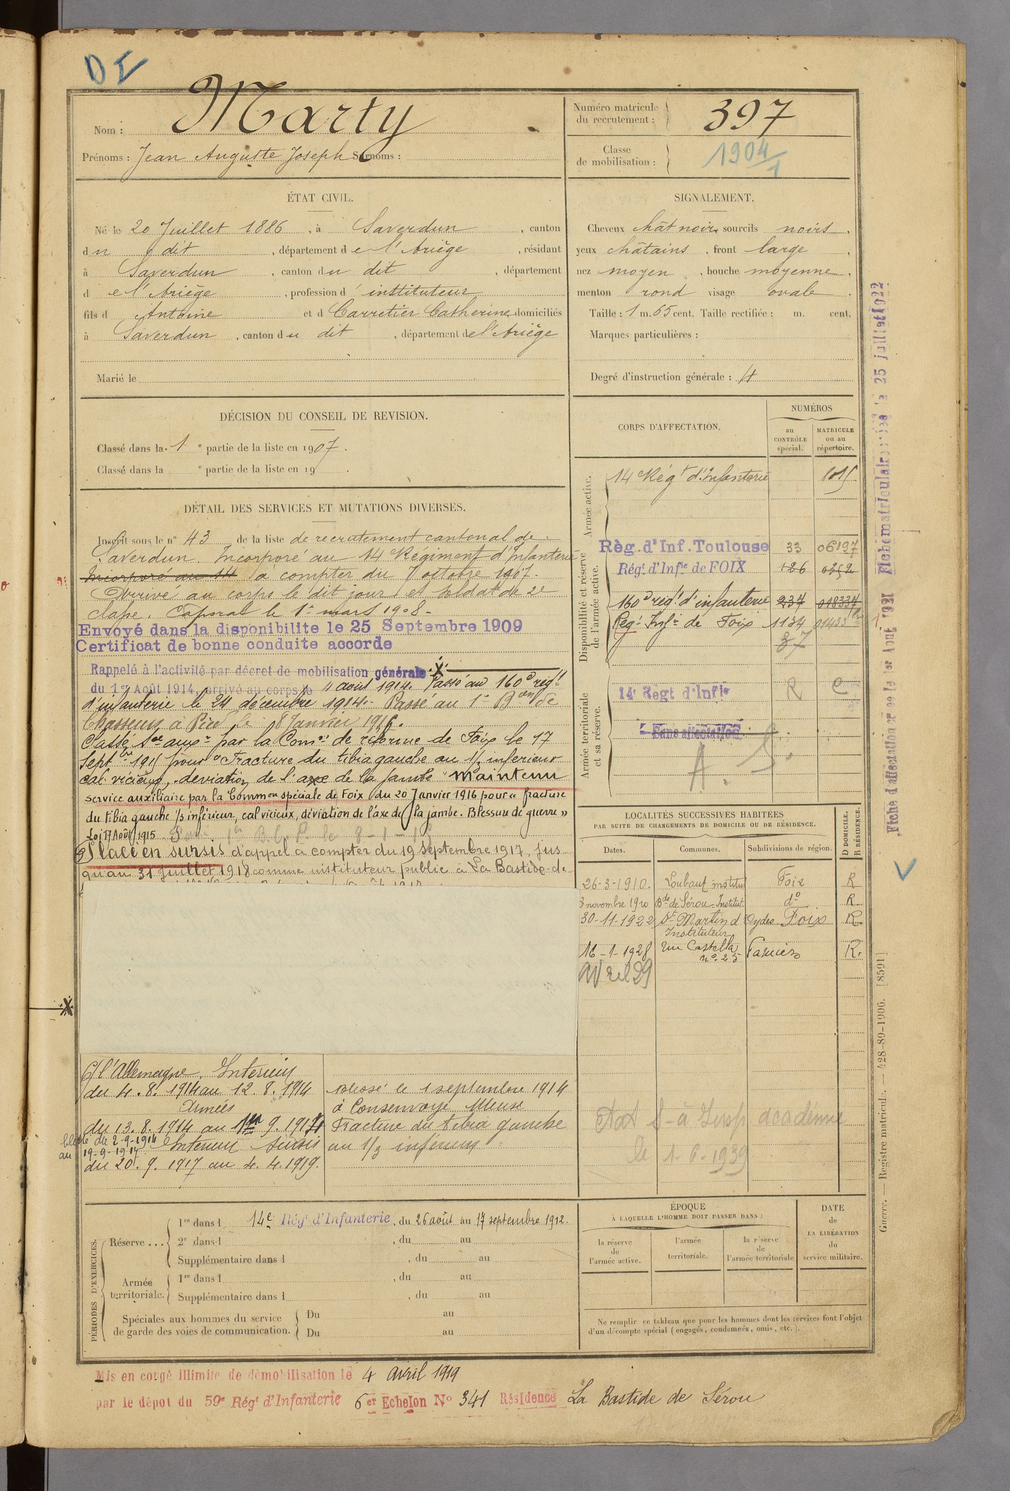 DI
Nom : Marty
Prénoms : Jean Auguste Joseph Surnoms :
Numéro matricule du recrutement : 397
Classe de mobilisation : 1904/1
ÉTAT CIVIL.
Né le 20 Juillet 1886, à Saverdun, canton
du dit, département de l'Ariège, résidant
à Saverdun, canton du dit, département
de l'Ariège, profession d'instituteur
fils d Antoine et d Carretier Catherine domiciliés
à Saverdun, canton du dit, département de l'Ariège
Marié le
SIGNALEMENT.
Cheveux chât noirs sourcils noirs,
yeux châtains, front large,
nez moyen, bouche moyenne,
menton rond visage ovale.
Taille : 1 m. 65 cent. Taille rectifiée : m. cent.
Marques particulières :
Degré d'instruction générale : 4
DÉCISION DU CONSEIL DE REVISION.
Classé dans la 1e partie de la liste en 1907.
Classé dans la e partie de la liste en 19 .
DÉTAIL DES SERVICES ET MUTATIONS DIVERSES.
Inscrit sous le n° 43 de la liste de recrutement cantonal de
Saverdun. Incorporé au 14e Régiment d'Infanterie
Incorporé au 14e à compter du 7 octobre 1907.
Arrivé au corps le dit jour et soldat de 2e
classe. Caporal le 1er mars 1908.
Envoyé dans la disponibilite le 25 Septembre 1909
Certificat de bonne conduite accorde
Rappelé à l'activité par décret de mobilisation générale
du 1er Août 1914, arrivé au corps le 4 août 1914. Passé au 160e régt
d'infanterie le 24 décembre 1914. Passé au 1er Bon de
Chasseurs à Pied le 8 Janvier 1916.
Classé Sce aux. par la Comon de réforme de Foix le 17
Septbre 1915 pour "Fracture du tibia gauche au 1/3 inférieur
cal vicieux, déviation de l'axe de la jambe" Maintenu
service auxiliaire par la Common spéciale de Foix du 20 Janvier 1916 pour « fracture
du tibia gauche 1/3 inférieur, cal vicieux, déviation de l'axe de la jambe. Blessure de guerre »
Loi 17 Août 1915
Placé en sursis d'appel à compter du 19 septembre 1917, jus
qu'au 31 juillet 1918 comme instituteur public à La Bastide-de-
CORPS D'AFFECTATION.
NUMÉROS
au CONTRÔLE spécial.
MATRICULE ou au répertoire.
Armée active.
14e Régt d'Infanterie 1015
Disponibilité et réserve de l'armée active.
Règ. d'Inf. Toulouse 33 06197
Régt. d'Infie de FOIX 126 0252
160e régt d'infanterie 237 018334
Régt Infie de Foix 1134
87
Armée territoriale et sa réserve.
14e Regt d'Infie R C
Sans affectation
A. S.
LOCALITÉS SUCCESSIVES HABITÉES
PAR SUITE DE CHANGEMENTS DE DOMICILE OU DE RÉSIDENCE.
Dates. Communes. Subdivisions de région. D DOMICILE. R RÉSIDENCE.
26-3-1910. Loubaut institut Foix R
3 novembre 1910 Bde de Sérou-Institut do R
30-11-1922 St Martin d'Oydes Foix R
Instituteur
16-1-1928 Rue Castella n° 25 Pamiers R.
avril 29
Ct l'Allemagne. Intérieur
du 4.8.1914 au 12.8.1914
Armées
du 13.8.1914 au 1er 9.1914
Intérieur sursis
du 20.9.1917 au 4.4.1919.
blessé le 1 septembre 1914
à Consenvoye Meuse
Fracture du tibia gauche
au 1/3 inférieur
Aas S à Insp académie
le 1.6.1939
PÉRIODES D'EXERCICES.
Réserve ... 1re dans l 14e Régt d'Infanterie, du 26 août au 17 septembre 1912.
2e dans l , du au
Supplémentaire dans l , du au
Armée territoriale. 1re dans l , du au
Supplémentaire dans l , du au
Spéciales aux hommes du service de garde des voies de communication. Du au
Du au
ÉPOQUE
À LAQUELLE L'HOMME DOIT PASSER DANS :
la réserve de l'armée active.
l'armée territoriale.
la réserve de l'armée territoriale
DATE de LA LIBÉRATION du service militaire.
Ne remplir ce tableau que pour les hommes dont les services font l'objet
d'un décompte spécial (engagés, condamnés, omis, etc.).
Mis en congé illimité de démobilisation le 4 avril 1919
par le dépôt du 59e Régt d'Infanterie 6er Echelon N° 341 Résidence La Bastide de Sérou
Guerre. — Registre matricul. — 428-89-1906. [8591]